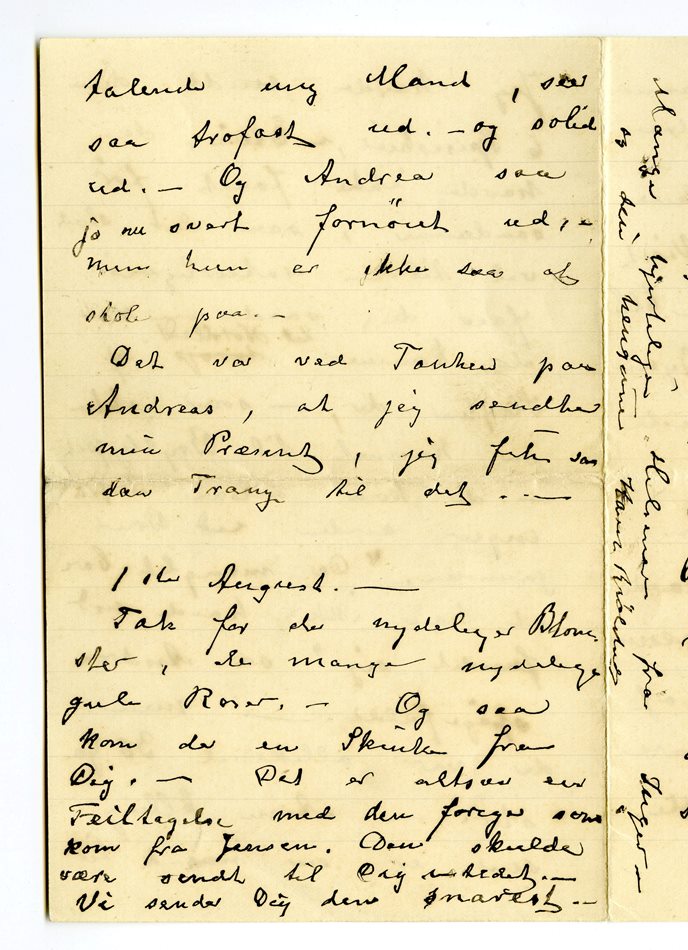 talende ung Mand, ser
saa trofast ud. – og solid
ud. – Og Andrea saa
jo nu svært fornöiet ud, –
men hun er ikke saa at
stole paa. –
Det var ved Tanken paa
Andreas, at jeg sendte
min Præsent, jeg fik saa
dan Trang til det. . –
1ste August. –
Tak for de nydelige Blom
ster, de mange nydelige
gule Roser. – Og saa
kom der en Skinke fra
Dig. – Det er altsaa en
Feiltagelse med den forige som
kom fra Jensen. Den skulde
være sendt til Dig istedet. –
Vi sender Dig den snarest. –
Mange hjertelige Hilsener fra Inger –
og din hengivne